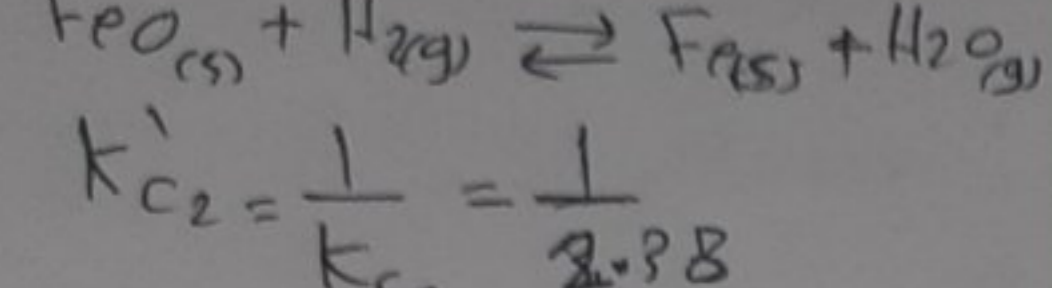 FeO(s) + H2(g) ⇌ Fe(s) + H2O(g)
K'C2 = 1/Kc = 1/2.38